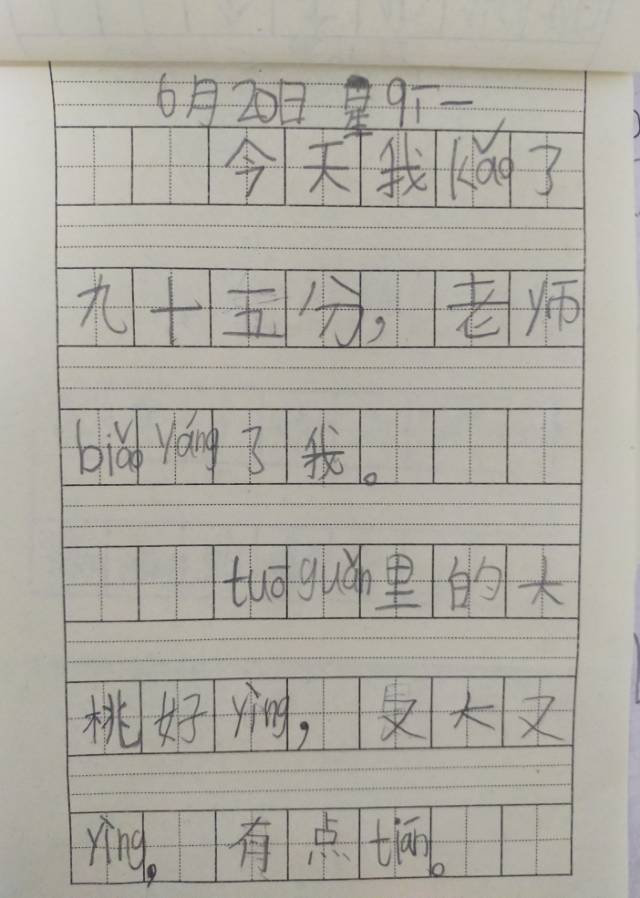 6月20日 星qī一
今天我kǎo了
九十五分，老师
biǎo yáng了我。
tuō guǎn里的大
桃好yìng，又大又
yìng，有点tián。